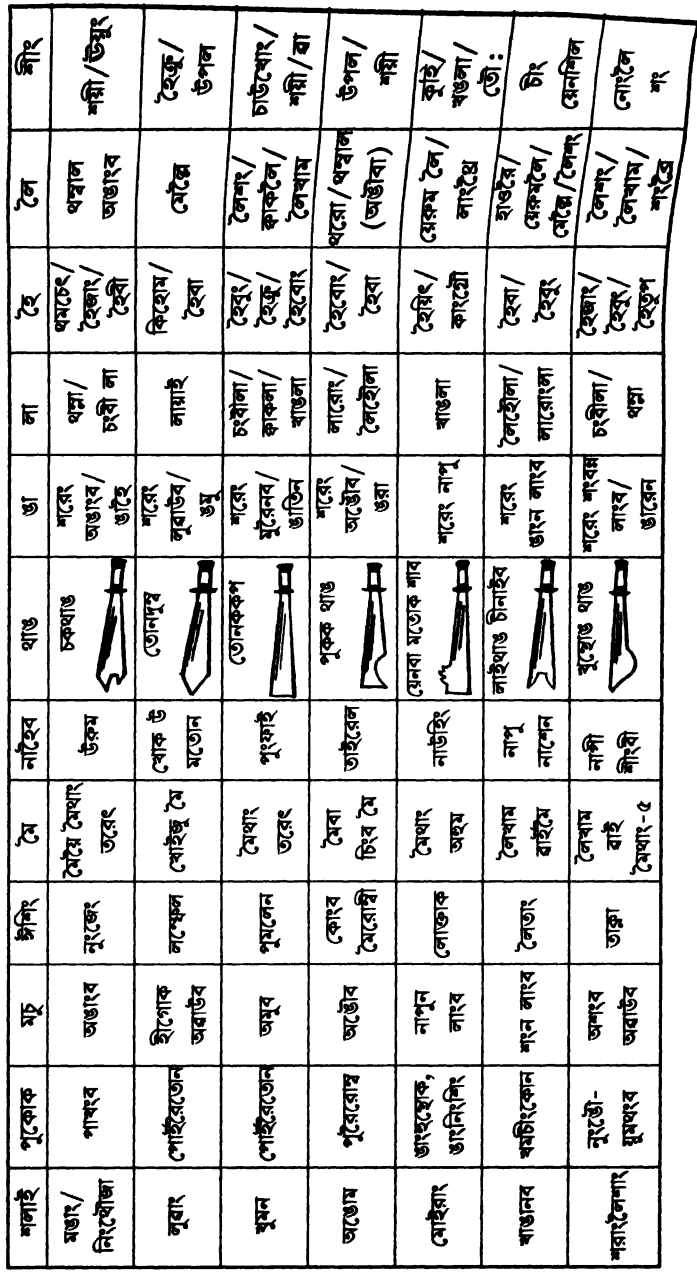 শলাই
পুকোক
মচু
ঈশিং
মৈ
নাহৈব
থাঙ
ঙা
লা
হৈ
লৈ
শীং
মঙাং/
নিংথৌজা
পাখংব
অঙাংব
নুংজেং
মৈয়ৈ মৈথাং
তরেৎ
উরুম
চকথাঙ
শরেং
অঙাংব/
ঙাহৈ
থম্না/
চংবী লা
থমচেৎ/
হৈজাং/
হৈবী
থম্বাল
অঙাংব
শয়ী/উয়ুং
লুৱাং
পোইরৈতোন
হীগোক
অৱাউব
লম্ফেল
খোইজু মৈ
খোক উ
মতোন
তোনদুম্ব
শরেং
লুৱাউব/
ঙমু
লায়াই
কিহোম/
হৈবা
মেল্লৈ
হৈক্রু/
উপল
খুমন
পোইরৈতোন
অমুব
পুমলেন
মৈথাং
তরেৎ
পুংফাই
তোনককপ
শরেং
মুরৈনব/
ঙাতিন
চংবীলা/
কাকলা/
খাঙলা
হৈবুং/
হৈক্রু/
হৈবোং
লৈশং/
কাকলৈ/
লৈখাম
চাউখোং/
শয়ী/ৱা
অঙোম
পুরৈরোম্ব
অঙৌব
কোংব
মৈরোম্বী
মৈবা
চিংব মৈ
তাইরেল
পুকক থাঙ
শরেং
অঙৌব/
ঙরা
লারোং/
লৈহৌলা
হৈবোং/
হৈবা
থরো/থম্বাল
(অঙৌবা)
উপল/
শয়ী
মোইরাং
ঙাংহুম্থোক,
ঙাংনিংশিং
নাপুন
লাংব
লোক্তাক
মৈথাং
অহুম
নাউহিং
য়েনবা মতোক শাব
শরেং নাপু
খাঙলা
হৈয়িৎ/
কাংগ্রৌ
য়েরুম লৈ/
লাংথ্রৈ
কুহি/
খঙলা/
তৌ:
খাঙানব
খমচিংকোন
শংন লাংব
লৈতাং
লৈখাম
ৱাইমৈ
নাপু
নাশেন
লাইথাঙ চীনাইব
শরেং
ঙাংন লাংব
লৈহৌলা/
লারোংলা
হৈবা/
হৈবুং
হাওরৈ/
য়েরুমলৈ/
মেল্লৈ/লৈশং
চীং
য়েনশিল
শরাংলৈশাং
নুংঙৌ-
য়ুমথংব
অশংব
অৱাউব
তাক্না
লৈখাম
ৱাই
মৈথাং-৫
নাপী
শীংবী
খুম্থোঙ থাঙ
শরেং শংবন্ন
লাংব/
ঙারেন
চংবীলা/
থম্না
হৈজাং/
হৈবুং/
হৈতুপ
লৈশাং/
লৈখাম/
শংব্রৈ
নোংলৈ
শং